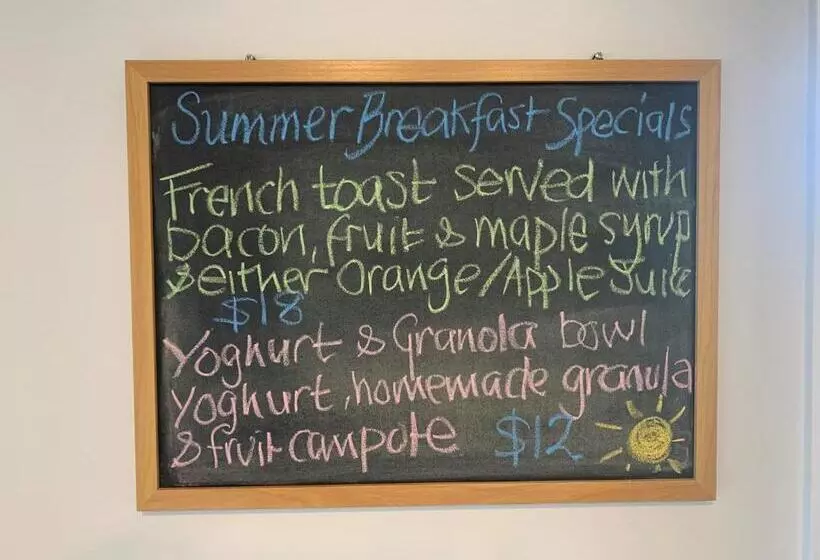 Summer Breakfast Specials
French toast served with
bacon, fruit & maple syrup
& either Orange/Apple Juice
$18
Yoghurt & Granola bowl
Yoghurt, homemade granula
& fruit campote $12